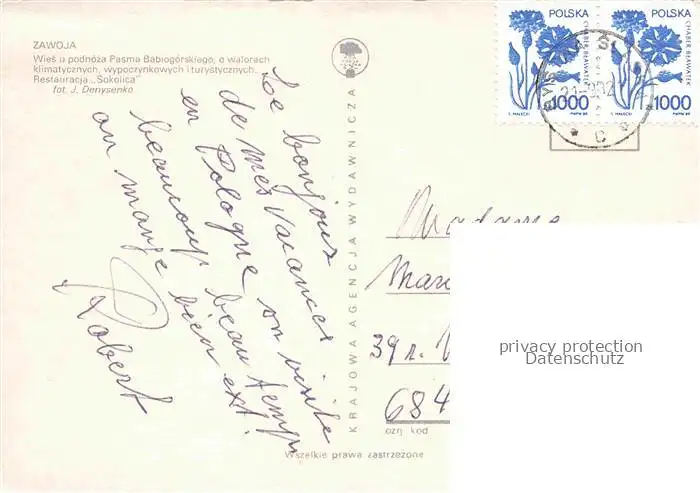 ZAWOJA
Wieś u podnóża Pasma Babiogórskiego, o walorach
klimatycznych, wypoczynkowych i turystycznych.
Restauracja „Sokolica"
fot. J. Denysenko
Le bonjour
de mes Vacances
en Pologne on visite
beaucoup beau temps
on mange bien ext!
Robert
KRAJOWA AGENCJA WYDAWNICZA
POLSKA
CHABER BŁAWATEK
1000
T. MAŁECKI
PWPW 89
POLSKA
CHABER BŁAWATEK
1000
T. MAŁECKI
PWPW 89
C
Madame
39 r.
684
kod
Wszelkie prawa zastrzeżone
privacy protection
Datenschutz